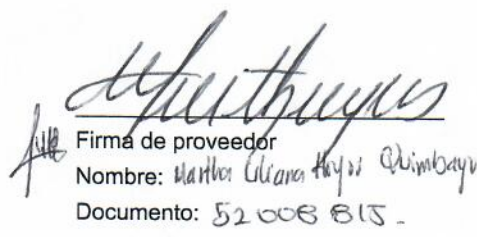 Firma de proveedor
Nombre: Martha Liliana Hoyos Quimbayo
Documento: 52 008 815.